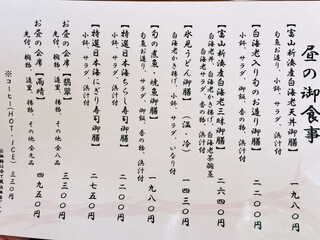 昼の御食事
【富山新湊産白海老天丼御膳】 一九八〇円
小鉢、サラダ、香の物、浜汁付
【白海老入り旬のお造り御膳】 二二〇〇円
小鉢、サラダ、御飯、香の物、浜汁付
【富山新湊産白海老三昧御膳】 二六四〇円
白海老天丼、白海老かき揚げ、白海老茶碗蒸
白海老サラダ、香の物、浜汁付
【氷見うどん御膳】（温・冷） 一四三〇円
白海老かき揚げ、小鉢、サラダ、いなり付
【旬の煮魚・焼魚御膳】 一九八〇円
旬魚お造り、サラダ、御飯、香の物、浜汁付
【特選日本海ちらし寿司御膳】 二二〇〇円
小鉢、サラダ、浜汁付
【特選日本海にぎり寿司御膳】 二七五〇円
小鉢、サラダ、浜汁付
お昼の会席【翡翠】 三三〇〇円
先付、椀物、造里、揚物、その他 全八品
お昼の会席【高晴】 四九五〇円
先付、椀物、造里、揚物、その他 全九品
※コーヒー（HOT・ICE）三三〇円